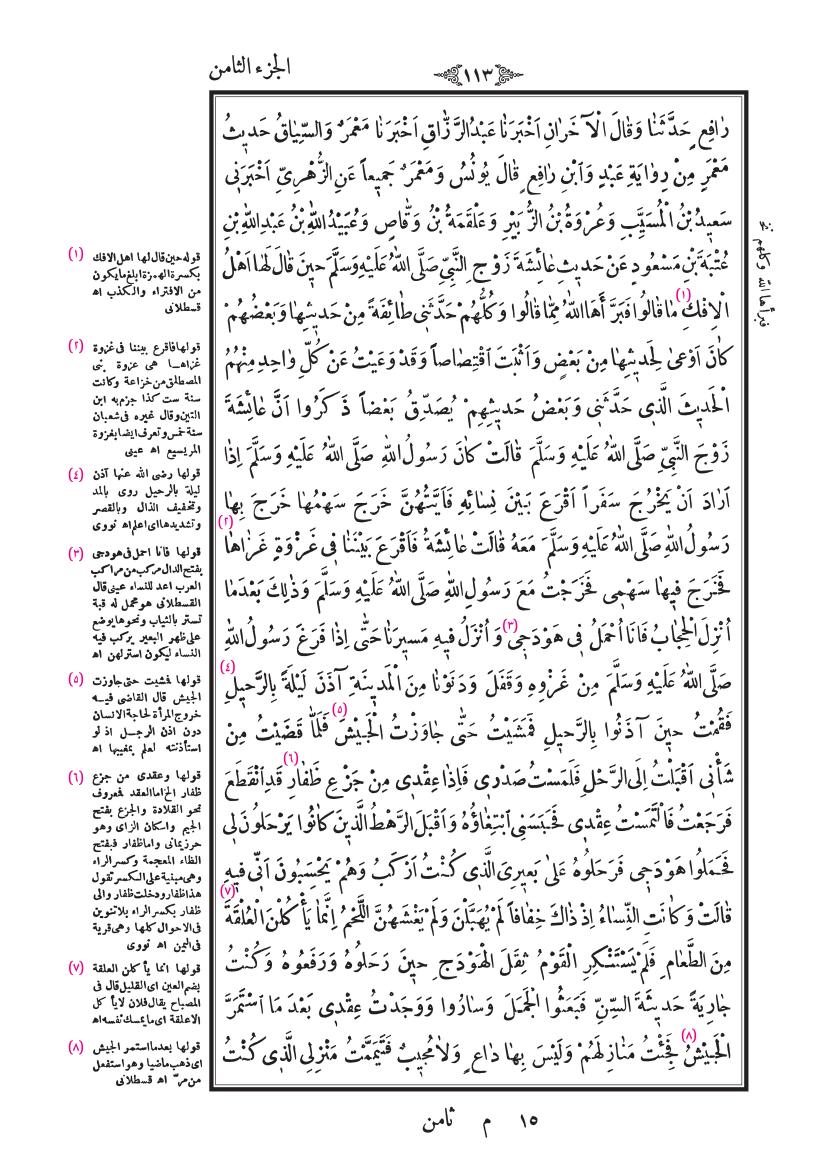 الجزء الثامن
١١٣
رافِعٍ حَدَّثَنا وَقالَ الْآخَرانِ اَخْبَرَنا عَبْدُ الرَّزَّاقِ اَخْبَرَنا مَعْمَرٌ وَالسِّياقُ حَديثُ
مَعْمَرٍ مِنْ رِوايَةِ عَبْدٍ وَابْنِ رافِعٍ قالَ يُونُسُ وَمَعْمَرٌ جَميعاً عَنِ الزُّهْرِيِّ اَخْبَرَنى
سَعيدُ بْنُ الْمُسَيَّبِ وَعُرْوَةُ بْنُ الزُّبَيْرِ وَعَلْقَمَةُ بْنُ وَقَّاصٍ وَعُبَيْدُ اللّٰهِ بْنُ عَبْدِ اللّٰهِ بْنِ
عُتْبَةَ بْنِ مَسْعُودٍ عَنْ حَديثِ عائِشَةَ زَوْجِ النَّبِيِّ صَلَّى اللّٰهُ عَلَيْهِ وَسَلَّمَ حينَ قالَ لَها اَهْلُ
الْاِفْكِ (١) ما قالُوا فَبَرَّأَهَا اللّٰهُ مِمَّا قالُوا وَكُلُّهُمْ حَدَّثَنى طائِفَةً مِنْ حَديثِها وَبَعْضُهُمْ
كانَ اَوْعٰى لِحَديثِها مِنْ بَعْضٍ وَاَثْبَتَ اقْتِصاصاً وَقَدْ وَعَيْتُ عَنْ كُلِّ واحِدٍ مِنْهُمُ
الْحَديثَ الَّذى حَدَّثَنى وَبَعْضُ حَديثِهِمْ يُصَدِّقُ بَعْضاً ذَكَرُوا اَنَّ عائِشَةَ
زَوْجَ النَّبِيِّ صَلَّى اللّٰهُ عَلَيْهِ وَسَلَّمَ قالَتْ كانَ رَسُولُ اللّٰهِ صَلَّى اللّٰهُ عَلَيْهِ وَسَلَّمَ اِذا
اَرادَ اَنْ يَخْرُجَ سَفَراً اَقْرَعَ بَيْنَ نِسائِهِ فَاَيَّتُهُنَّ خَرَجَ سَهْمُها خَرَجَ بِها
رَسُولُ اللّٰهِ صَلَّى اللّٰهُ عَلَيْهِ وَسَلَّمَ مَعَهُ قالَتْ عائِشَةُ فَاَقْرَعَ بَيْنَنا فى غَزْوَةٍ غَزاها (٢)
فَخَرَجَ فيها سَهْمى فَخَرَجْتُ مَعَ رَسُولِ اللّٰهِ صَلَّى اللّٰهُ عَلَيْهِ وَسَلَّمَ وَذٰلِكَ بَعْدَمَا
اُنْزِلَ الْحِجابُ فَاَنَا اُحْمَلُ فى هَوْدَجى (٣) وَاُنْزَلُ فيهِ مَسيرَنا حَتّٰى اِذا فَرَغَ رَسُولُ اللّٰهِ
صَلَّى اللّٰهُ عَلَيْهِ وَسَلَّمَ مِنْ غَزْوِهِ وَقَفَلَ وَدَنَوْنا مِنَ الْمَدينَةِ آذَنَ لَيْلَةً بِالرَّحيلِ (٤)
فَقُمْتُ حينَ آذَنُوا بِالرَّحيلِ فَمَشَيْتُ حَتّٰى جاوَزْتُ الْجَيْشَ (٥) فَلَمَّا قَضَيْتُ مِنْ
شَأْنى اَقْبَلْتُ اِلَى الرَّحْلِ فَلَمَسْتُ صَدْرى فَاِذا عِقْدى (٦) مِنْ جَزْعِ ظَفارِ قَدِ انْقَطَعَ
فَرَجَعْتُ فَالْتَمَسْتُ عِقْدى فَحَبَسَنِى ابْتِغاؤُهُ وَاَقْبَلَ الرَّهْطُ الَّذينَ كانُوا يَرْحَلُونَ لى
فَحَمَلُوا هَوْدَجى فَرَحَلُوهُ عَلٰى بَعيرِىَ الَّذى كُنْتُ اَرْكَبُ وَهُمْ يَحْسَبُونَ اَنّى فيهِ
قالَتْ وَكانَتِ النِّساءُ اِذْ ذاكَ خِفافاً لَمْ يُهَبَّلْنَ وَلَمْ يَغْشَهُنَّ اللَّحْمُ اِنَّما يَأْكُلْنَ الْعُلْقَةَ (٧)
مِنَ الطَّعامِ فَلَمْ يَسْتَنْكِرِ الْقَوْمُ ثِقَلَ الْهَوْدَجِ حينَ رَحَلُوهُ وَرَفَعُوهُ وَكُنْتُ
جارِيَةً حَديثَةَ السِّنِّ فَبَعَثُوا الْجَمَلَ وَسارُوا وَوَجَدْتُ عِقْدى بَعْدَ مَا اسْتَمَرَّ
الْجَيْشُ (٨) فَجِئْتُ مَنازِلَهُمْ وَلَيْسَ بِها داعٍ وَلا مُجيبٌ فَتَيَمَّمْتُ مَنْزِلِى الَّذى كُنْتُ
فبرأها الله وكلهم نخ
(١) قوله حين قال لها اهل الافك
بكسرة الهمزة ابلغ ما يكون
من الافتراء والكذب اه
قسطلانى
(٢) قولها فاقرع بيننا فى غزوة
غزاهـا هى غزوة بنى
المصطلق من خزاعة وكانت
سنة ست كذا جزم به ابن
التين وقال غيره فى شعبان
سنة خمس وتعرف ايضا بغزوة
المريسيع اه عينى
(٤) قولها رضى الله عنها آذن
ليلة بالرحيل روى بالمد
وتخفيف الذال وبالقصر
وتشديدها اى اعلم اه نووى
(٣) قولها فانا احمل فى هودجى
بفتح الدال مركب من مراكب
العرب اعد للنساء عينى قال
القسطلانى هو محمل له قبة
تستر بالثياب ونحوها يوضع
على ظهر البعير يركب فيه
النساء ليكون استر لهن اه
(٥) قولها فمشيت حتى جاوزت
الجيش قال القاضى فيـه
خروج المرأة لحاجة الانسان
دون اذن الرجـل اذ لو
استأذنته لعلم بمغيبها اه
(٦) قولها وعقدى من جزع
ظفار الخ اما العقد فمعروف
نحو القلادة والجزع بفتح
الجيم واسكان الزاى وهو
خرز يمانى واما ظفار فبفتح
الظاء المعجمة وكسر الراء
وهى مبنية على الكسر تقول
هذا ظفار ودخلت ظفار والى
ظفار بكسر الراء بلا تنوين
فى الاحوال كلها وهى قرية
فى اليمن اه نووى
(٧) قولها انما يأكلن العلقة
بضم العين اى القليل قال فى
المصباح يقال فلان لا يأكل
الا علقة اى ما يمسك نفسه اه
(٨) قولها بعدما استمر الجيش
اى ذهب ماضيا وهو استفعل
من مرّ اه قسطلانى
١٥ م ثامن